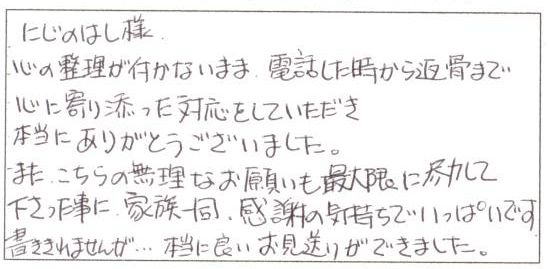 にじのはし様
心の整理が付かないまま、電話した時から返骨まで
心に寄り添った対応をしていただき
本当にありがとうございました。
また、こちらの無理なお願いも最大限に して
下さった事に、家族一同、感謝の気持ちでいっぱいです
書ききれませんが…本当に良いお見送りができました。